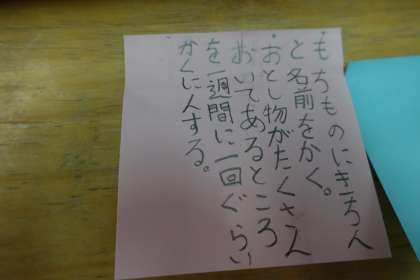 ・もちものにきちん
と名前をかく。
・おとし物がたくさん
おいてあるところ
を一週間に一回ぐらい
かくにんする。